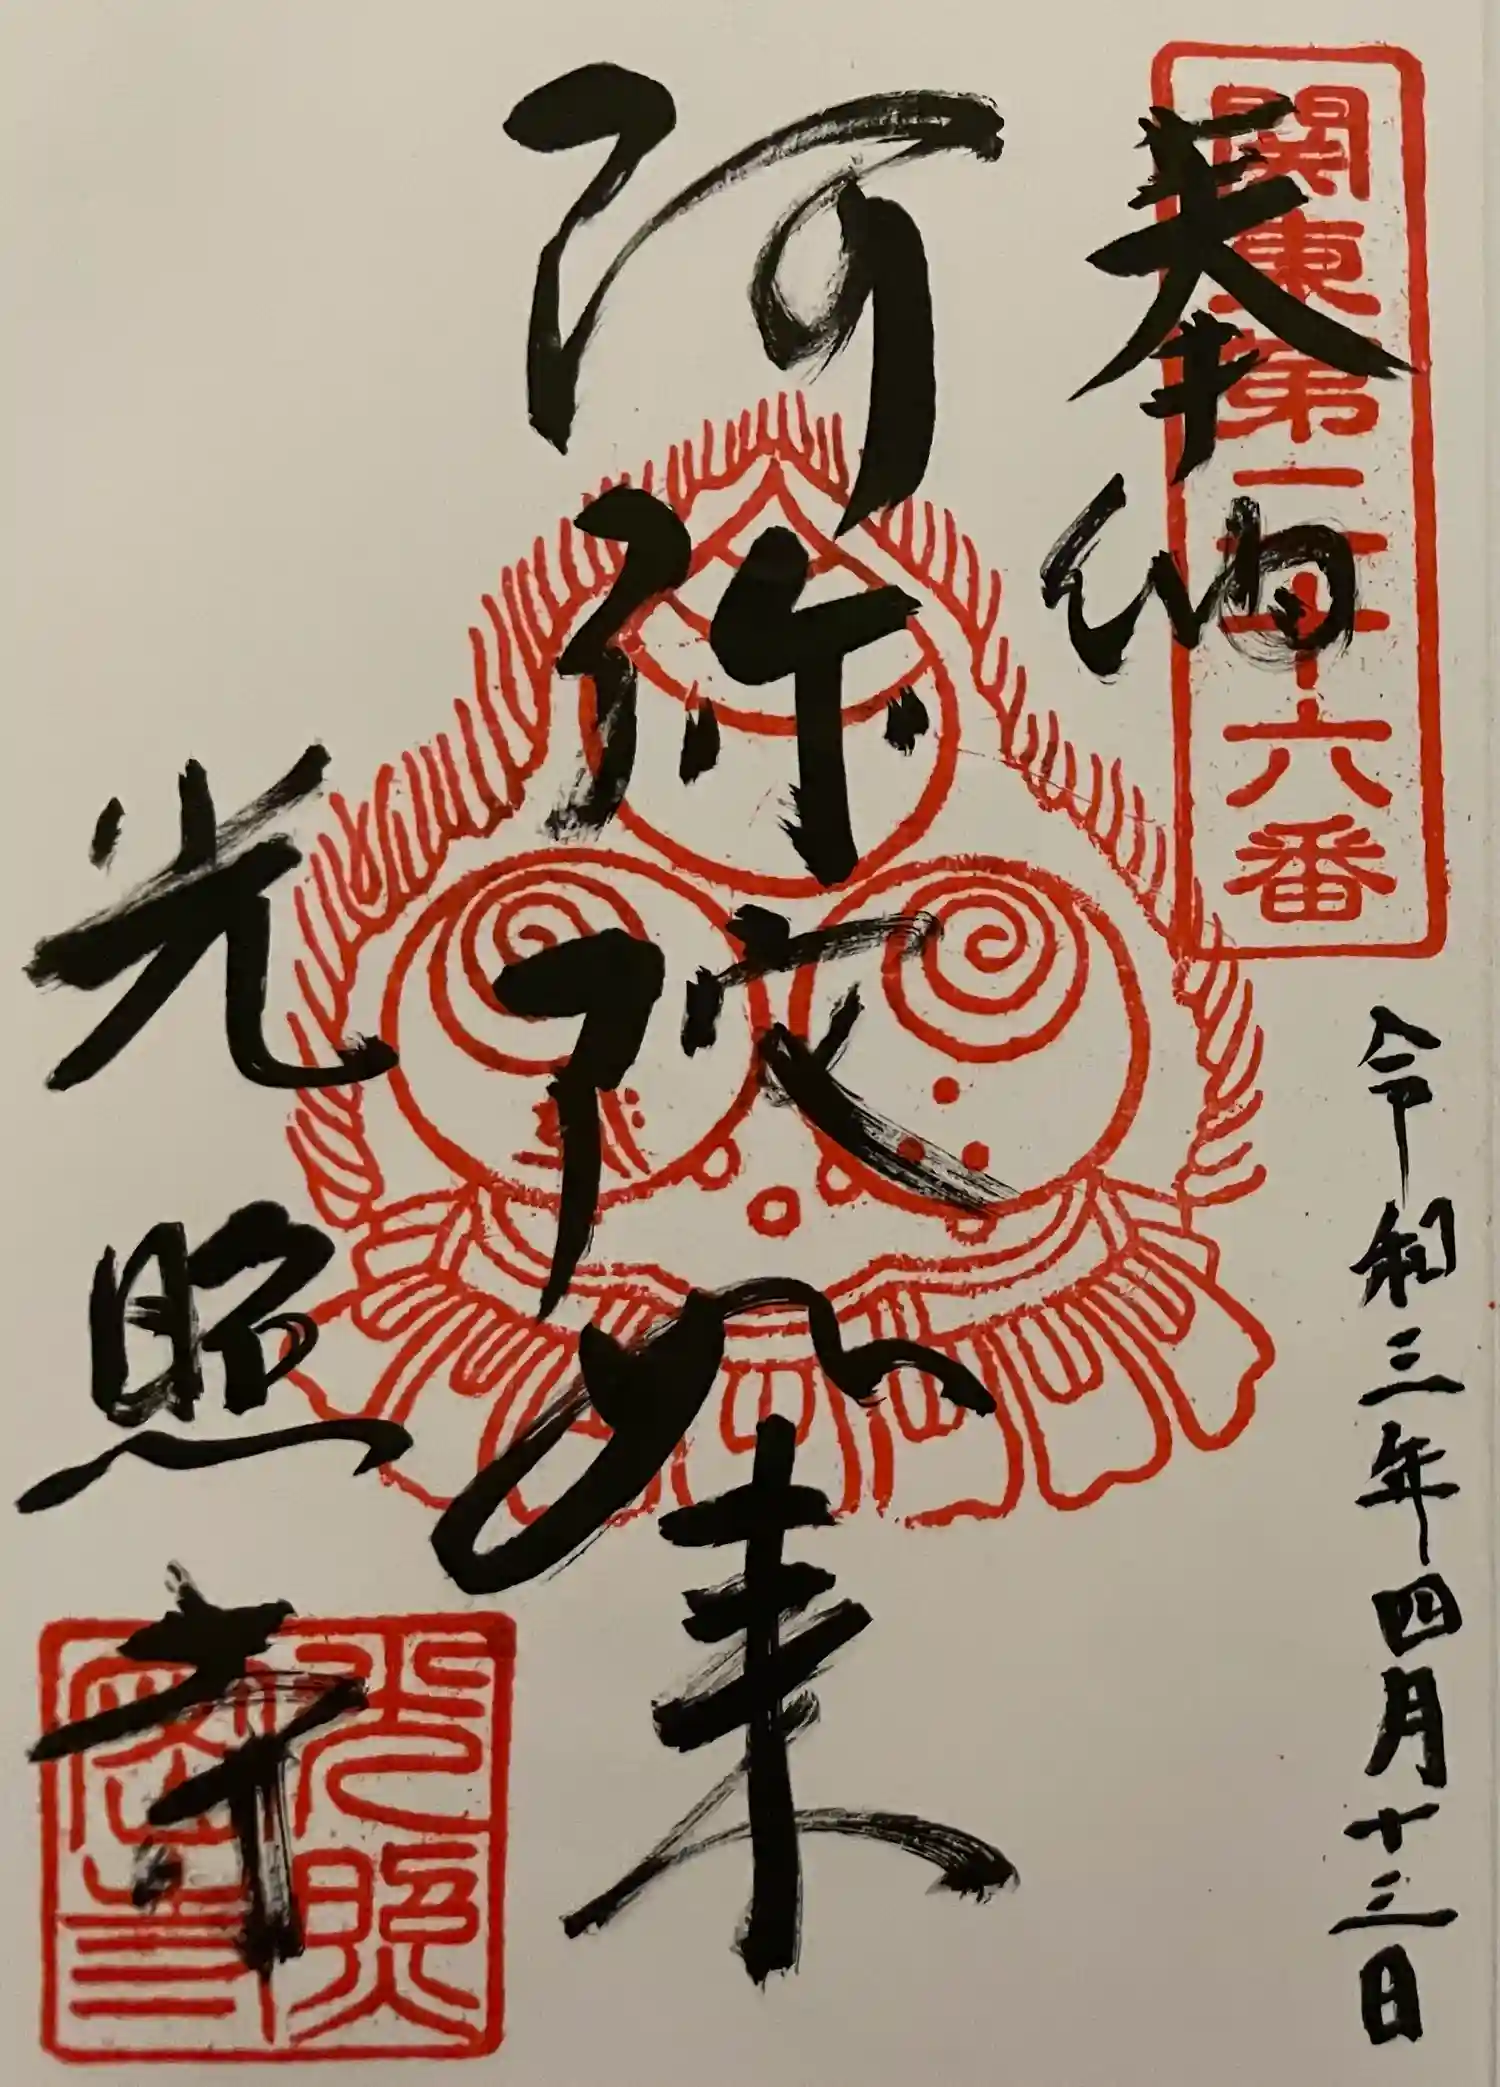 奉納
関東第二十六番
令和三年四月十三日
阿弥陀如来
光照寺